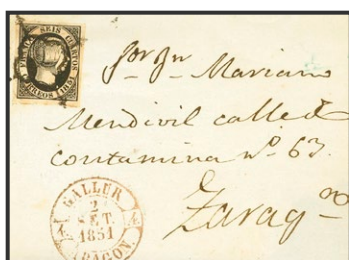 FRANCO SEIS CUARTOS
CORREOS 1851
Sor Dn Mariano
Mendivil calle d
contamina nº 63.
Zaragza
GALLUR
2
SET.
1851
ARAGON.